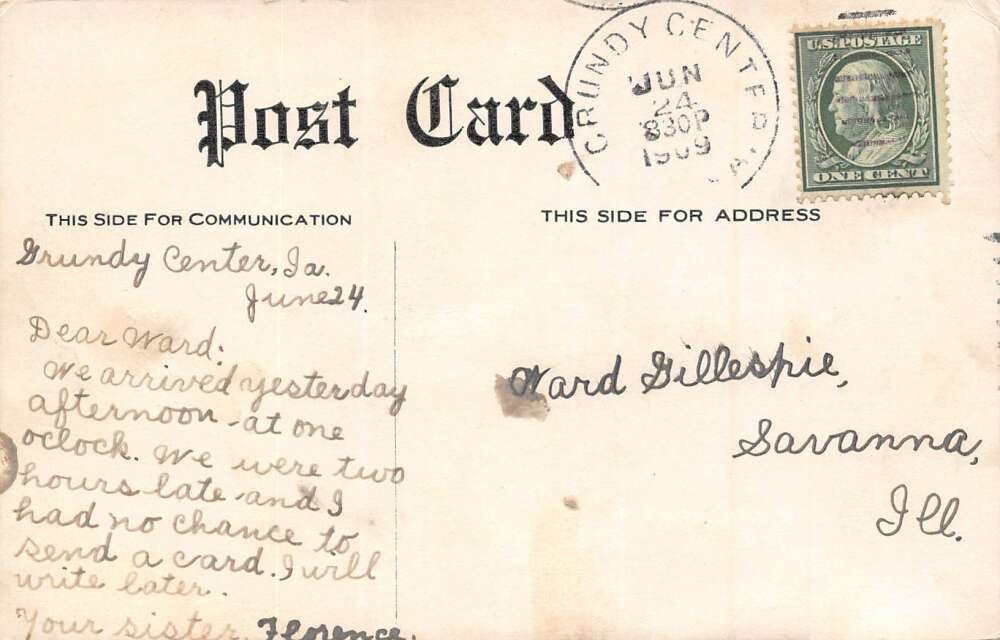 Post Card
GRUNDY CENTER,
JUN
24
830P
1909
IA.
U.S. POSTAGE
ONE CENT
THIS SIDE FOR COMMUNICATION
THIS SIDE FOR ADDRESS
Grundy Center, Ia.
June 24.
Dear Ward:
We arrived yesterday
afternoon at one
oclock. We were two
hours late and I
had no chance to
send a card. I will
write later.
Your sister, Florence.
Ward Gillespie,
Savanna,
Ill.